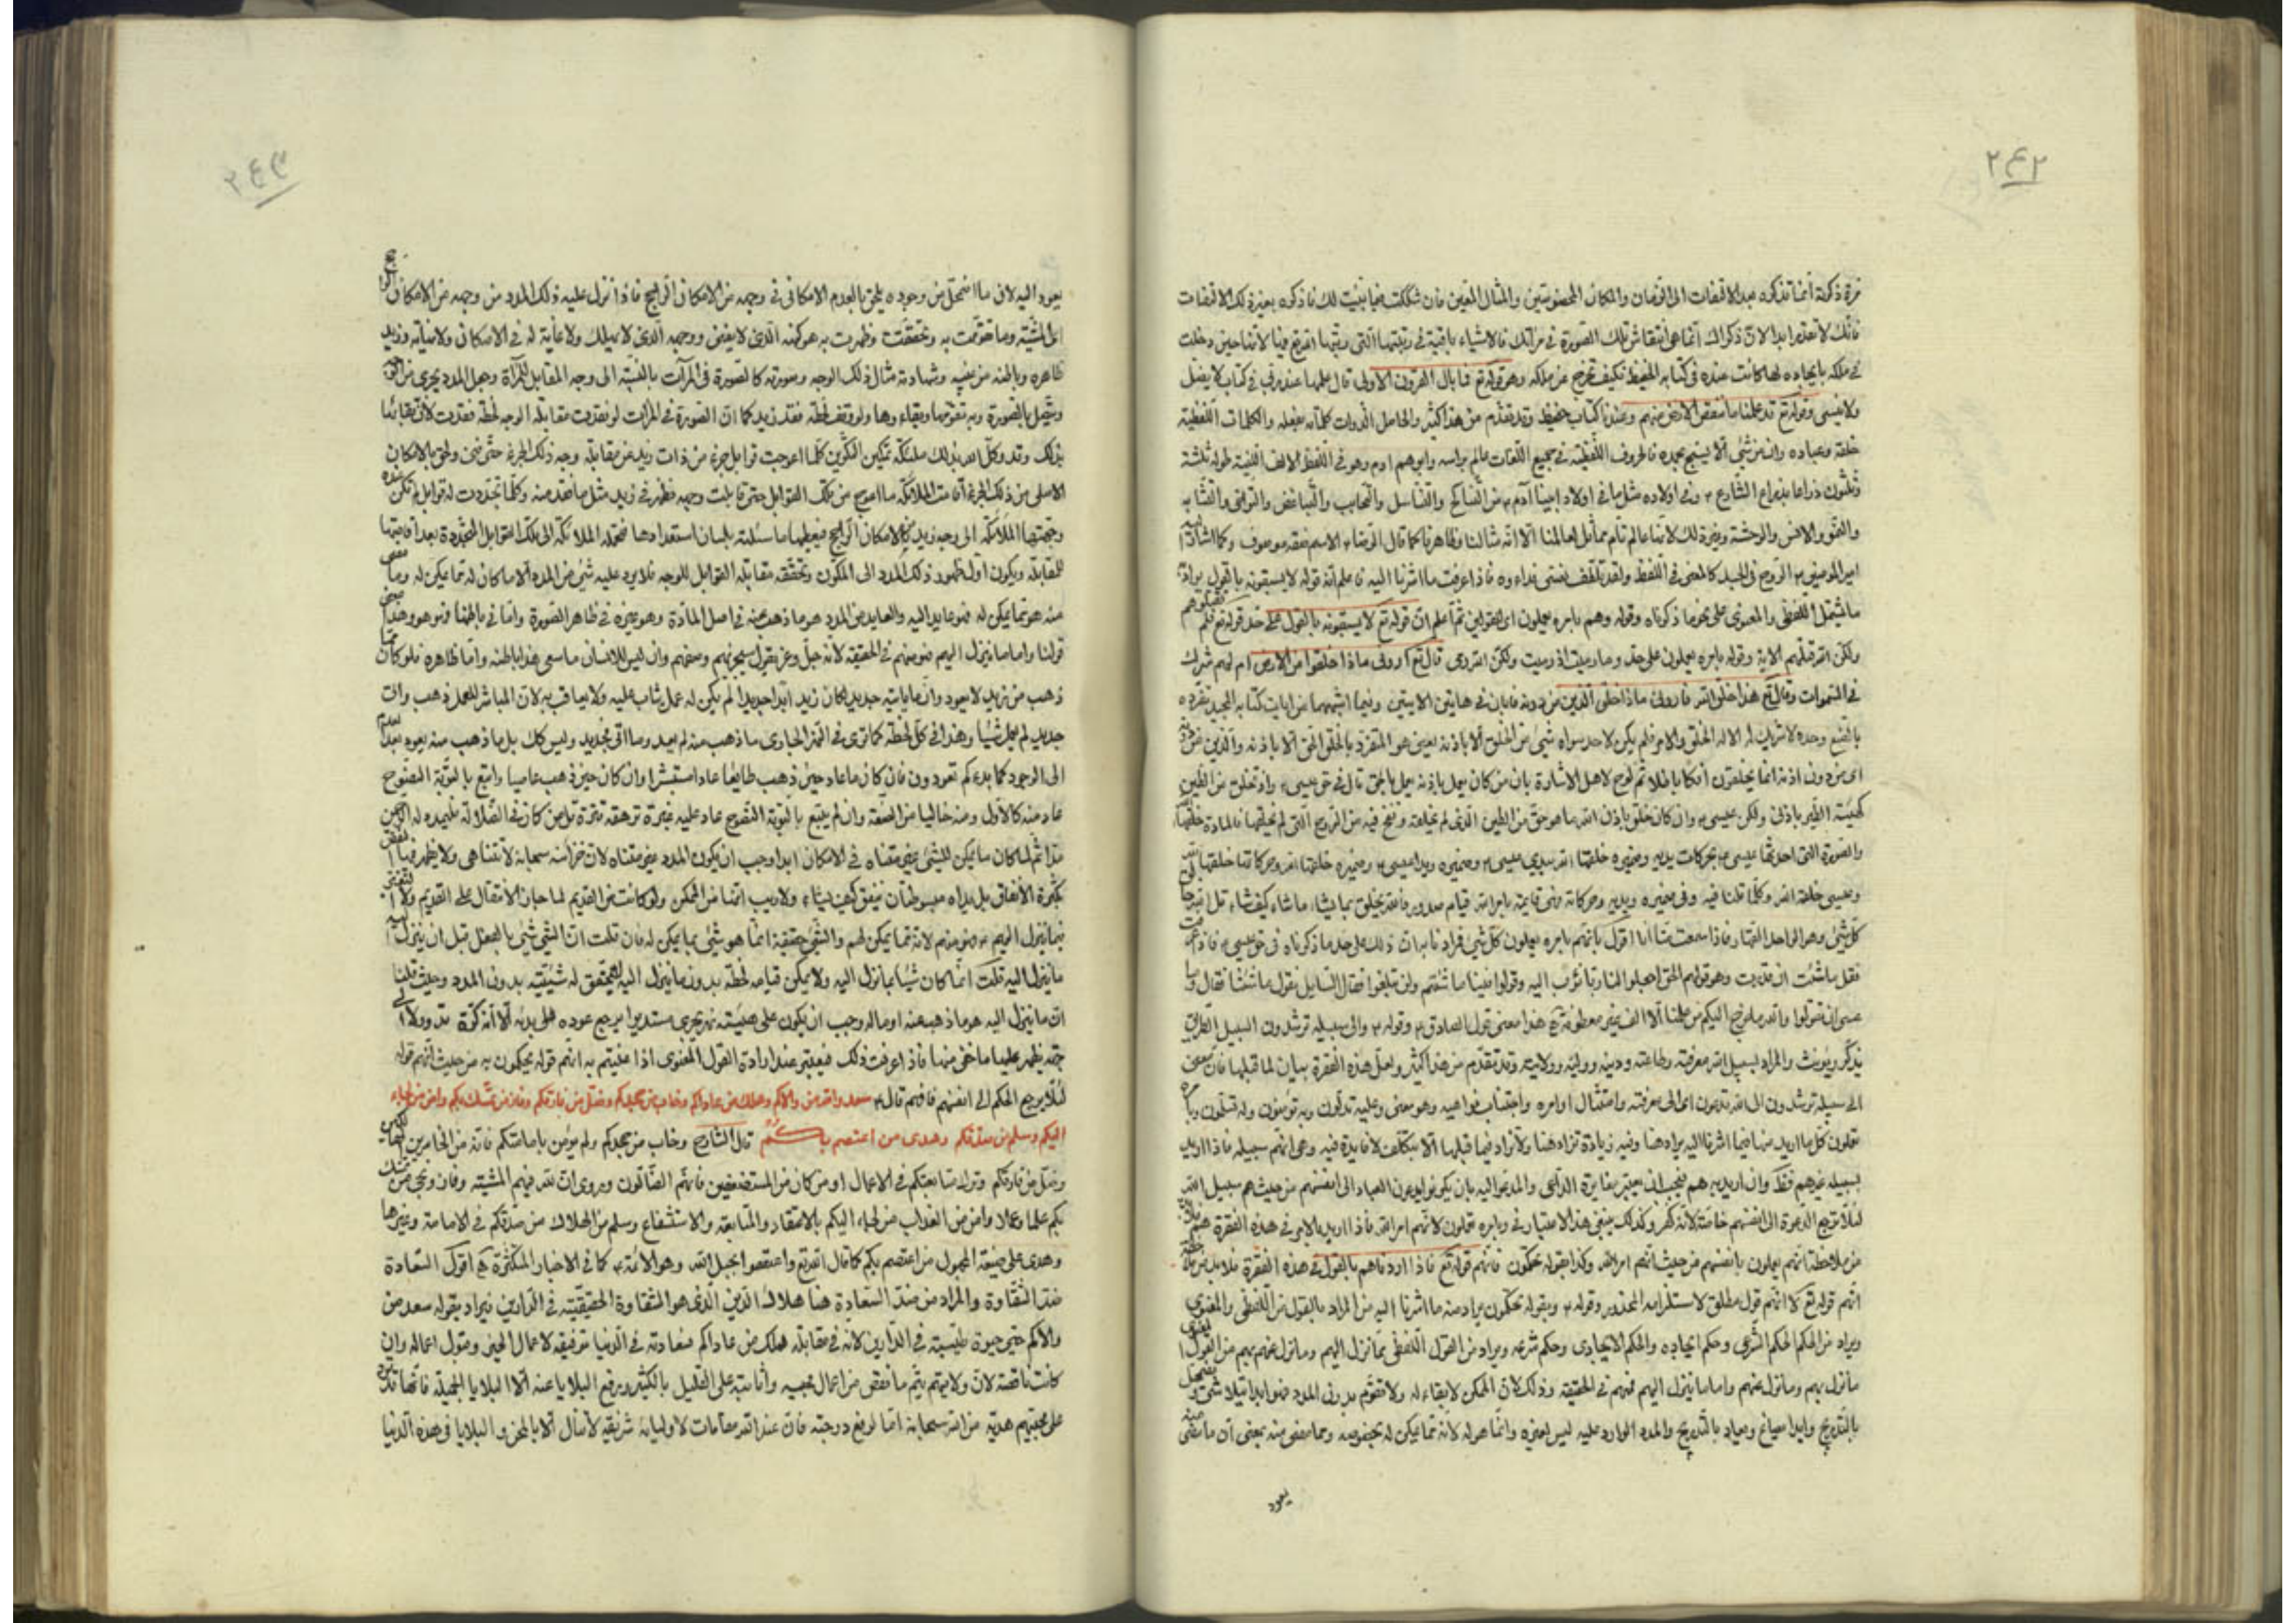 ٢٤٢
مرة ذكرته انما تذكره بعد الالتفات الى الزمان والمكان المخصوصين والمثال المعين فان شككت فيما بينت لك فاذكره بغير ذلك الالتفات
فانك لا تقدر ابدا لان ذكراك انما هي انتقاش تلك الصورة في مرآتك فالاشياء باقية في رتبتها التي رتبها الله تع فيها لانها حين دخلت
في ملكه بايجاده لها كانت عنده في كتابه الحفيظ فكيف تخرج عن ملكه وهو قوله تع فما بال القرون الاولى قال علمها عند ربي في كتاب لا يضل
ولا ينسى وقوله تع قد علمنا ما تنقص الارض منهم وعندنا كتاب حفيظ وقد تقدم من هذا كثير والحاصل الذوات كلماته بفعله والكلمات اللفظية
خلقه وعباده وان من شيء الا يسبح بحمده فالحروف اللفظية في جميع اللغات عالم براسه وابوهم ادم وهو في اللفظ الالف اللينة طوله ثلثة
وثلثون ذراعا بذراع الشارع ع وفي اولاده مثل ما في اولاد ابينا آدم ع من التناكح والتناسل والتحابب والتباغض والتوافق والتشابه
والنمو والانس والوحشة وغير ذلك لانها عالم تام مماثل لعالمنا الا انه مثالنا وظاهرنا كما قال الرضا ع الاسم صفة موصوف وكما اشار اليه
امير المومنين ع الروح في الجسد كالمعنى في اللفظ ولقد تلطف نفسي فداءه فاذا عرفت ما اشرنا اليه فاعلم انه قوله لا يسبقونه بالقول يراد
ما يشمل اللفظي والمعنوي على نحو ما ذكرناه وقوله وهم بامره يعملون اي القولين ثم اعلم ان قوله تع لا يسبقونه بالقول على حد قوله تع فلم تقتلوهم
ولكن الله قتلهم الاية وقوله بامره يعملون على حد وما رميت اذ رميت ولكن الله رمى قال تع اروني ماذا خلقوا من الارض ام لهم شرك
في السموات وقال تع هذا خلق الله فاروني ماذا خلق الذين من دونه فابان في هاتين الايتين وفيما اشبههما من ايات كتابه المجيد تفرده
بالصنع وحده لا شريك له الا له الخلق والامر فلم يكن لاحد سواه شيء من الخلق الا باذنه يعني هو المتفرد بالخلق الحق الا باذنه والذين من دونه
اي من دون اذنه انما يخلقون افكا باطلا ثم لوح لاهل الاشارة بان من كان يعمل باذنه يعمل بالحق قال في حق عيسى ع واذ تخلق من الطين
كهيئة الطير باذني ولكن عيسى ع وان كان خلق باذن الله ما هو حق من الطين الذي لم يخلقه ونفخ فيه من الروح التي لم يخلقها فالمادة خلقها الله
والصورة التي احدثها عيسى ع بحركات يديه وضميره خلقها الله بيدي عيسى ع وضميره ويدا عيسى ع وضميره خلقها الله وحركاتها خلقها الله
وعيسى خلقه الله وكلما قلنا فيه وفي ضميره ويديه وحركاته فهي قائمة بامر الله قيام صدور فالله يخلق بما يشاء ما شاء كيف شاء قل الله خالق
كل شيء وهو الواحد القهار فاذا سمعت منا انا اقول بانهم بامره يعملون كل شيء فرادنا به ان ذلك على حد ما ذكرناه في حق عيسى ع فاذا عرفت
فقل ما شئت ان قدرت وهو قولهم الحق اجعلوا لنا ربا نؤوب اليه وقولوا فينا ما شئتم ولن تبلغوا فقال السايل نقول ما شئنا فقال وما
عسى ان تقولوا والله ما خرج اليكم من علمنا الا الف غير معطوفة هذا معنى قول الصادق ع وقوله ع والى سبيله ترشدون السبيل الطريق
يذكر ويؤنث والمراد بسبيل الله معرفته وطاعته ودينه ووليه وولايته وقد تقدم من هذا كثير ولعل هذه الفقرة بيان لما قبلها فان معنى
الى سبيله ترشدون الى الله تدعون اي الى معرفته وامتثال اوامره واجتناب نواهيه وهو معنى وعليه تدلون وبه تؤمنون وله تسلمون وبامره
تعملون كل ما اريد منها فيما اشرنا اليه يراد هنا وفيه زيادة تزاد هنا ولا تراد فيما قبلها الا بتكلف لا فايدة فيه وهي انهم سبيله فاذا اريد
بسبيله غيرهم فظ وان اريد به هم فيجب ان يعتبر مغايرة الداعي والمدعو اليه بان يكونوا يدعون العباد الى انفسهم من حيث هم سبيل الله
لئلا ترجع الدعوة الى انفسهم خاصة لانه كفر وكذلك ينبغي هذا الاعتبار في وبامره تعملون لانهم امر الله فاذا اريد بالامر في هذه الفقرة هم فلا بد
من ملاحظة انهم يعملون بانفسهم من حيث انهم امر الله وكذا بقوله تحكمون فانهم قوله تع فاذا اردناهم بالقول في هذه الفقرة فلا بد من ملاحظة
انهم قوله تع لا انهم قول مطلق لاستلزامه المحذور وقوله ع وبقوله تحكمون يراد منه ما اشرنا اليه من المراد بالقول من اللفظي والمعنوي
ويراد من الحكم الحكم الشرعي وحكم ايجاده والحكم الايجادي وحكم شرعه ويراد من القول اللفظي بما نزل اليهم وما نزل عنهم بهم من القول المعنوي
ما نزل بهم وما نزل عنهم واما ما ينزل اليهم فمنهم في الحقيقة وذلك لان الممكن لا بقاء له ولا تقوم بدون المدد فهو ابدا يتلاشى ويضمحل
بالتدريج وابدا يصاغ ويعاد بالتدريج والمدد الوارد عليه ليس لغيره وانما هو له لانه مما يمكن له بخصوصه ومما مضى منه بمعنى ان ما مضى منه
يعود
٢٤٣
يعود اليه لان ما اضمحل من وجوده يلحق بالعدم الامكاني في وجهه من الامكان الراجح فاذا نزل عليه ذلك المدد من وجهه من الامكان الراجح
اي المشية وما تقومت به وتحققت وظهرت به هو كنهه الذي لا يفيض ووجهه الذي لا يهلك ولا غاية له في الامكان ولا نهاية وزيد
ظاهره وباطنه من غيبه وشهادته مثال ذلك الوجه وصورته كالصورة في المرآت بالنسبة الى وجه المقابل للمرآة وجعل المدد يجري من الوجه
ويتصل بالصورة وبه تقومها وبقاءوها ولو وقف لحظة فقد زيد كما ان الصورة في المرآت لو فقدت مقابلة الوجه لحظة فقدت لان بقائها
بذلك وقد وكل الله بذلك ملئكة تمكين التكوين كلما اعوجت قوابل جزء من ذات زيد عن مقابلة وجه ذلك الجزء حتى فنى ولحق بالامكان
الاصلي من ذلك الجزء اقامت الملائكة ما اعوج من تلك القوابل حتى قابلت وجهه فظهر في زيد مثل ما فقد منه وكلما تجددت له قوابل لم تكن عنده
وجهتها الملائكة الى وجه زيد من الامكان الراجح فيعطيها ما سئلته بلسان استعدادها فتحمله الملائكة الى تلك القوابل المتجددة بعد اقامتها
للمقابلة ويكون اول ظهور ذلك المدد الى المكون وتحققه مقابلة القوابل للوجه فلا يرد عليه شيء من المدد الا ما كان له مما يمكن له وما مضى
منه هو مما يمكن له فهو عايد اليه والعايد من المدد هو ما ذهب عنه في اصل المادة وهو غيره في ظاهر الصورة واما في باطنها فهو هو وهذا معنى
قولنا واما ما ينزل اليهم فهو منهم في الحقيقة لانه جل وعز يقول سيجزيهم وصفهم وان ليس للانسان ما سعى هذا باطنه واما ظاهره فلو كان ما
ذهب من زيد لا يعود وان ما ياتيه جديد لكان زيد ابدا جديدا لم يكن له عمل يثاب عليه ولا يعاقب به لان المباشر للعمل ذهب واتى
جديد لم يعمل شيئا وهذا في كل لحظة كما ترى في النهر الجاري ما ذهب منه لم يعد وما اتى جديد وليس كك بل ما ذهب منه يعود بعد
الى الوجود كما بدءكم تعودون فان كان ما عاد حين ذهب طايعا عاد مستبشرا وان كان حين ذهب عاصيا واتبع بالتوبة النصوح
عاد منه كالاول ومنه خاليا من الصفة وان لم يتبع بالتوبة النصوح عاد عليه غبرة ترهقه قترة قل من كان في الضلالة فليمدد له الرحمن
مدا ثم لما كان ما يمكن للشيء غير متناه في الامكان ابدا وجب ان يكون المدد غير متناه لان خزائنه سبحانه لا تتناهى ولا يظهر فيها النقص
بكثرة الانفاق بل يداه مبسوطتان ينفق كيف يشاء ولا ريب انها من الممكن ولو كانت من القديم لما جاز الانتقال على القديم ولا التغير
فما ينزل اليهم ع فهو منهم لانه مما يمكن لهم والشيء حقيقة انما هو شيء بما يمكن له فان قلت ان الشيء شيء بالفعل قبل ان ينزل اليه
ما ينزل اليه قلت انما كان شيئا بما نزل اليه ولا يمكن قيامه لحظة بدون ما ينزل اليه لانه لا يتحقق له شيئيته بدون المدد وحيث قلنا
ان ما ينزل اليه هو ما ذهب عنه او ماله وجب ان يكون على هيئته نهر يجري مستديرا يرجع عوده على بدئه الا انه كرة تدور لا الى
جهة يظهر عليها ما خفي منها فاذا عرفت ذلك فيعتبر عند ارادة القول المعنوي اذا عنيتم به انهم قوله يحكمون به من حيث انهم قوله
لئلا يرجع الحكم الى انفسهم فافهم قال ع سعد والله من والاكم وهلك من عاداكم وخاب من جحدكم وضل من فارقكم وفاز من تمسك بكم وامن من لجاء
اليكم وسلم من صدقكم وهدى من اعتصم بكم قال الشارح وخاب من جحدكم ولم يؤمن بامامتكم فانه من الخاسرين
وضل من فارقكم وترك متابعتكم في الاعمال او من كان من المستضعفين فانهم الضالون ويروى ان لله فيهم المشية وفاز ونجى من تمسك
بكم علما وعملا وامن من العذاب من لجاء اليكم بالاعتقاد والمتابعة والاستشفاع وسلم من الهلاك من صدقكم في الامامة وغيرها
وهدى على صيغة المجهول من اعتصم بكم كما قال الله تع واعتصموا بحبل الله وهو الائمة ع كما في الاخبار المتكثرة اقول السعادة
ضد الشقاوة والمراد من ضد السعادة هنا هلاك الدين الذي هو الشقاوة الحقيقية في الدارين فيراد بقوله سعد من
والاكم حيي حيوة طيبة في الدارين لانه في مقابلة هلك من عاداكم فسعادته في الدنيا توفيقه لاعمال الخير وقبول اعماله وان
كانت ناقصة لان ولايتهم يتم ما نقص من اعمال محبيه واثابته على القليل بالكثير ويرفع البلايا عنه الا البلايا الجميلة فانها تدل
على محبتهم هدية من الله سبحانه اما لرفع درجته فان عند الله مقامات لاوليائه شريفة لا تنال الا بالمحن والبلايا في هذه الدنيا